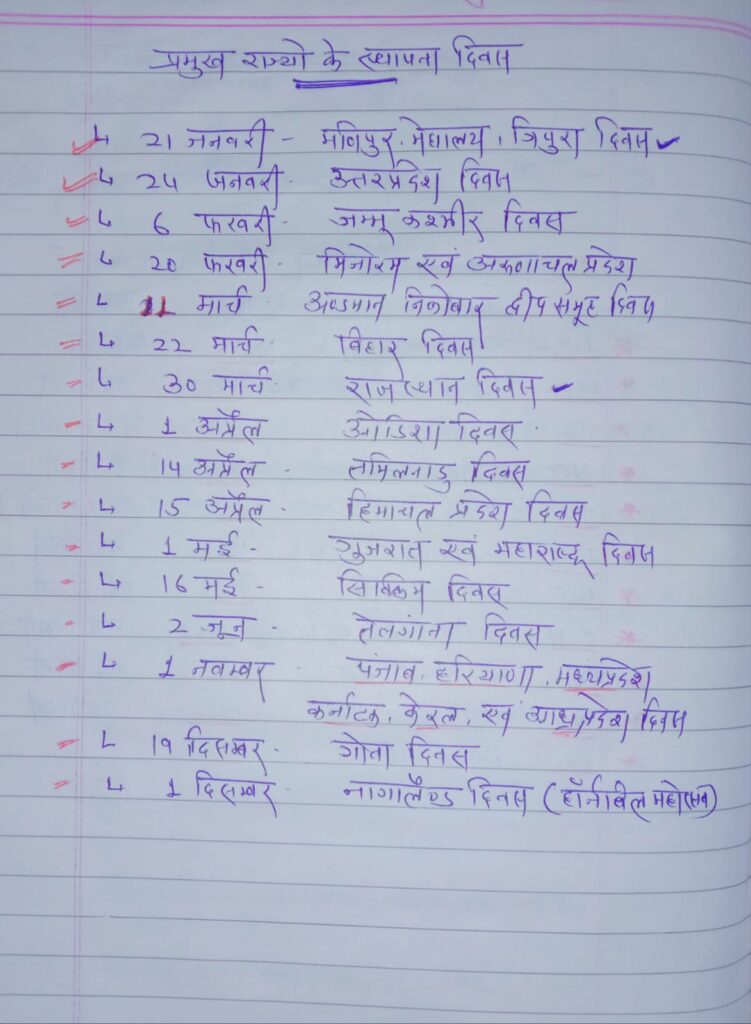 प्रमुख राज्यो के स्थापना दिवस
↳ 21 जनवरी - मणिपुर, मेघालय, त्रिपुरा दिवस ✓
↳ 24 जनवरी - उत्तरप्रदेश दिवस
↳ 6 फरवरी - जम्मू कश्मीर दिवस
↳ 20 फरवरी - मिजोरम एवं अरुणाचल प्रदेश
↳ 11 मार्च अण्डमान निकोबार द्वीप समूह दिवस
↳ 22 मार्च बिहार दिवस
↳ 30 मार्च - राजस्थान दिवस ✓
↳ 1 अप्रैल ओडिशा दिवस
↳ 14 अप्रैल - तमिलनाडु दिवस
↳ 15 अप्रैल - हिमाचल प्रदेश दिवस
↳ 1 मई - गुजरात एवं महाराष्ट्र दिवस
↳ 16 मई - सिक्किम दिवस
↳ 2 जून - तेलगांना दिवस
↳ 1 नवम्बर पंजाब, हरियाणा, मध्यप्रदेश
कर्नाटक, केरल, एवं आध्रप्रदेश दिवस
↳ 19 दिसम्बर - गोवा दिवस
↳ 1 दिसम्बर - नागालैण्ड दिवस (हॉर्नबिल महोत्सव)